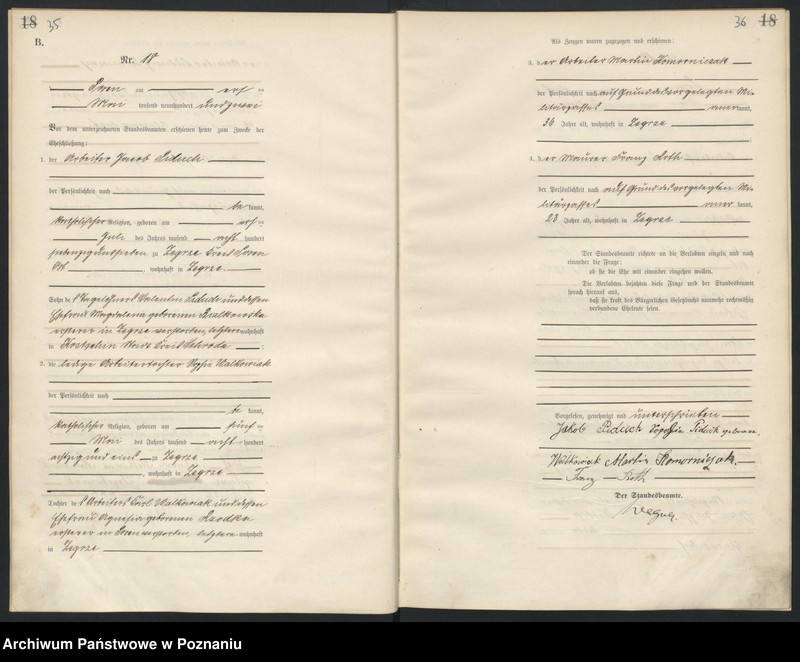 18 35
B.
Nr. 18
Posen am
Mai tausend neunhundert und zwei
Vor dem unterzeichneten Standesbeamten erschienen heute zum Zwecke der
Eheschließung:
1. der Arbeiter Jacob Piduch
der Persönlichkeit nach
be kannt,
katholischer Religion, geboren am
Juli des Jahres tausend acht hundert
zu Zegrze Kreis Posen
Ost, wohnhaft in Zegrze
Sohn des Tagelöhners Valentin Piduch und dessen
Ehefrau Magdalena geborenen
ersterer in Zegrze verstorben, letztere wohnhaft
in Kostschin Kreis Schroda
2. die ledige Arbeitertochter Sophie Walkowiak
der Persönlichkeit nach
be kannt,
katholischer Religion, geboren am fünf
Mai des Jahres tausend acht hundert
achtzig und eins zu Zegrze
, wohnhaft in Zegrze
Tochter des Arbeiters Karl Walkowiak und dessen
Ehefrau Agnesia geborenen
ersterer in Posen verstorben, letztere wohnhaft
in Zegrze
36 18
Als Zeugen waren zugezogen und erschienen:
3. der Arbeiter Martin Komorniczak
der Persönlichkeit nach auf Grund des vorgelegten Mi-
litärpasses anerkannt,
36 Jahre alt, wohnhaft in Zegrze
4. der Maurer Franz Roth
der Persönlichkeit nach auf Grund des vorgelegten Mi-
litärpasses aner kannt,
23 Jahre alt, wohnhaft in Zegrze
Der Standesbeamte richtete an die Verlobten einzeln und nach
einander die Frage:
ob sie die Ehe mit einander eingehen wollen.
Die Verlobten bejahten diese Frage und der Standesbeamte
sprach hierauf aus,
daß sie kraft des Bürgerlichen Gesetzbuchs nunmehr rechtmäßig
verbundene Eheleute seien.
Vorgelesen, genehmigt und unterschrieben
Jakob Piduch Piduch geborene
Walkowiak Martin Komorniczak.
Franz Roth
Der Standesbeamte.
Archiwum Państwowe w Poznaniu